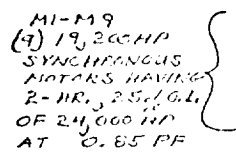 M1-M9
(9) 19,200 HP
SYNCHRONOUS
MOTORS HAVING
2-HR., 25% O.L.
OF 24,000 HP
AT 0.85 PF